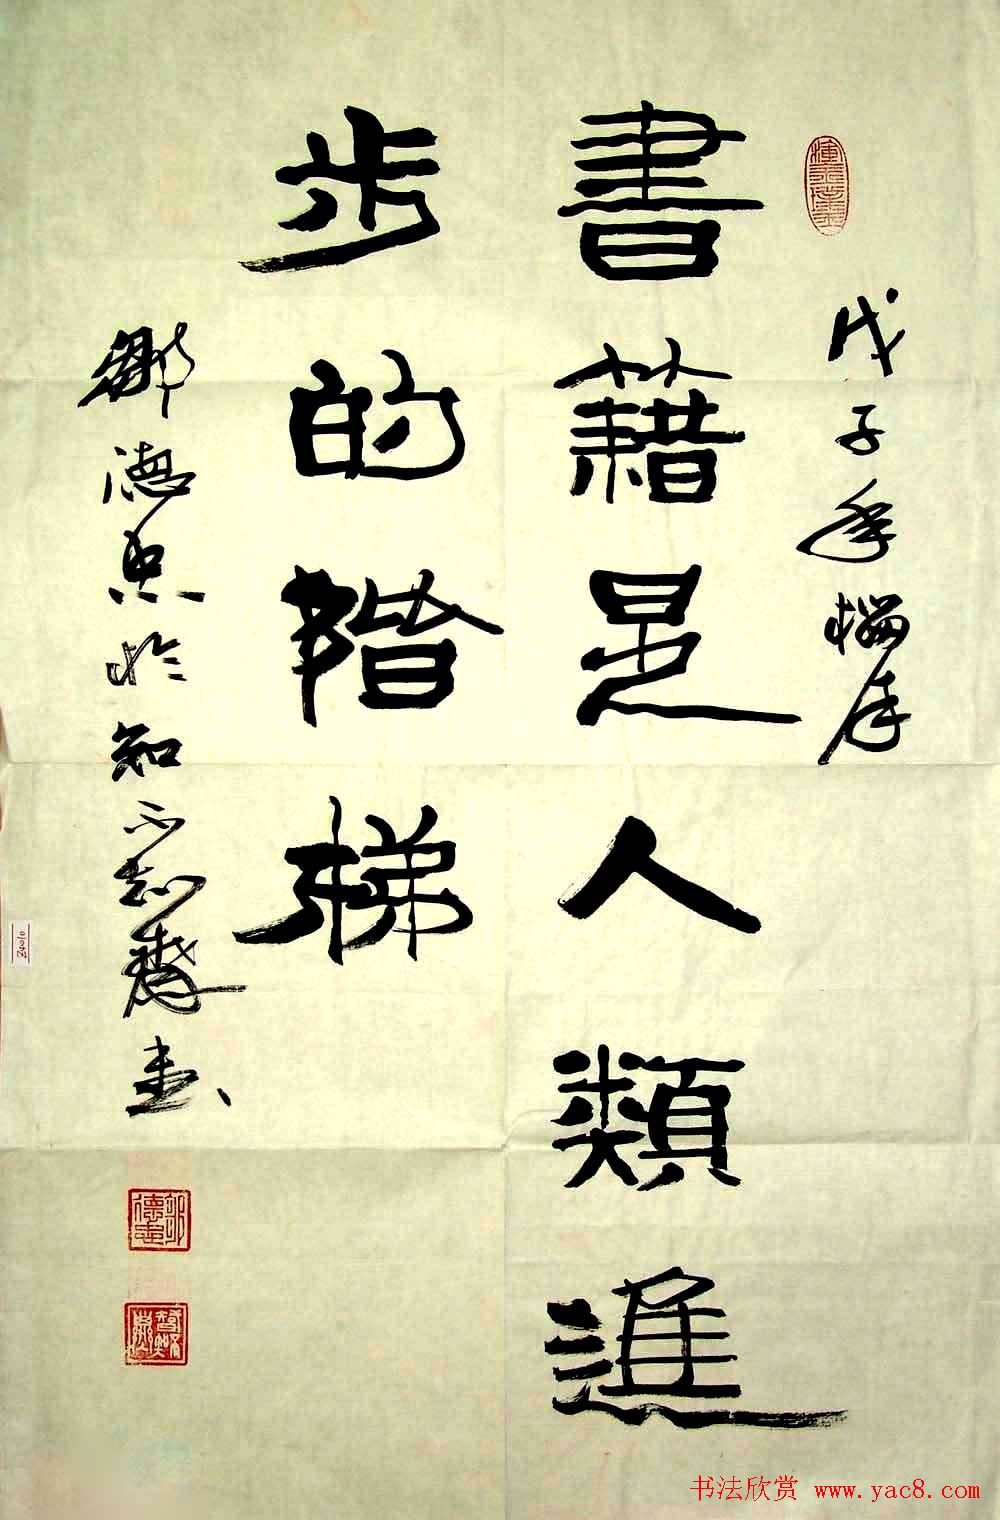 戊子年榴月
書籍是人類進
步的階梯
鄒德忠於知不知齋書
鄒德忠
书法欣赏 www.yac8.com